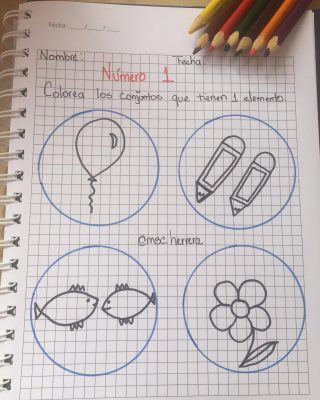 Fecha: ___/___/___
Nombre: Fecha:
Número 1
Colorea los conjuntos que tienen 1 elemento.
@mec herrera